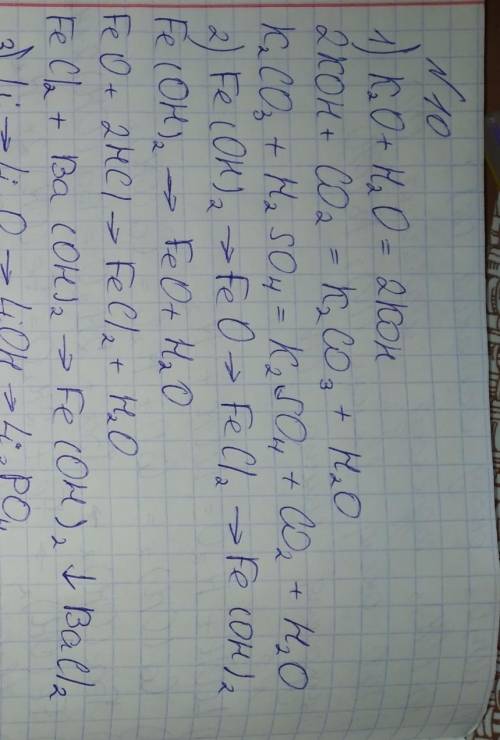 № 10
1) K₂O + H₂O = 2KOH
2KOH + CO₂ = K₂CO₃ + H₂O
K₂CO₃ + H₂SO₄ = K₂SO₄ + CO₂ + H₂O
2) Fe(OH)₂ → FeO → FeCl₂ → Fe(OH)₂
Fe(OH)₂ → FeO + H₂O
FeO + 2HCl → FeCl₂ + H₂O
FeCl₂ + Ba(OH)₂ → Fe(OH)₂ ↓ BaCl₂
3) Li → Li O → LiOH → Li₃PO₄